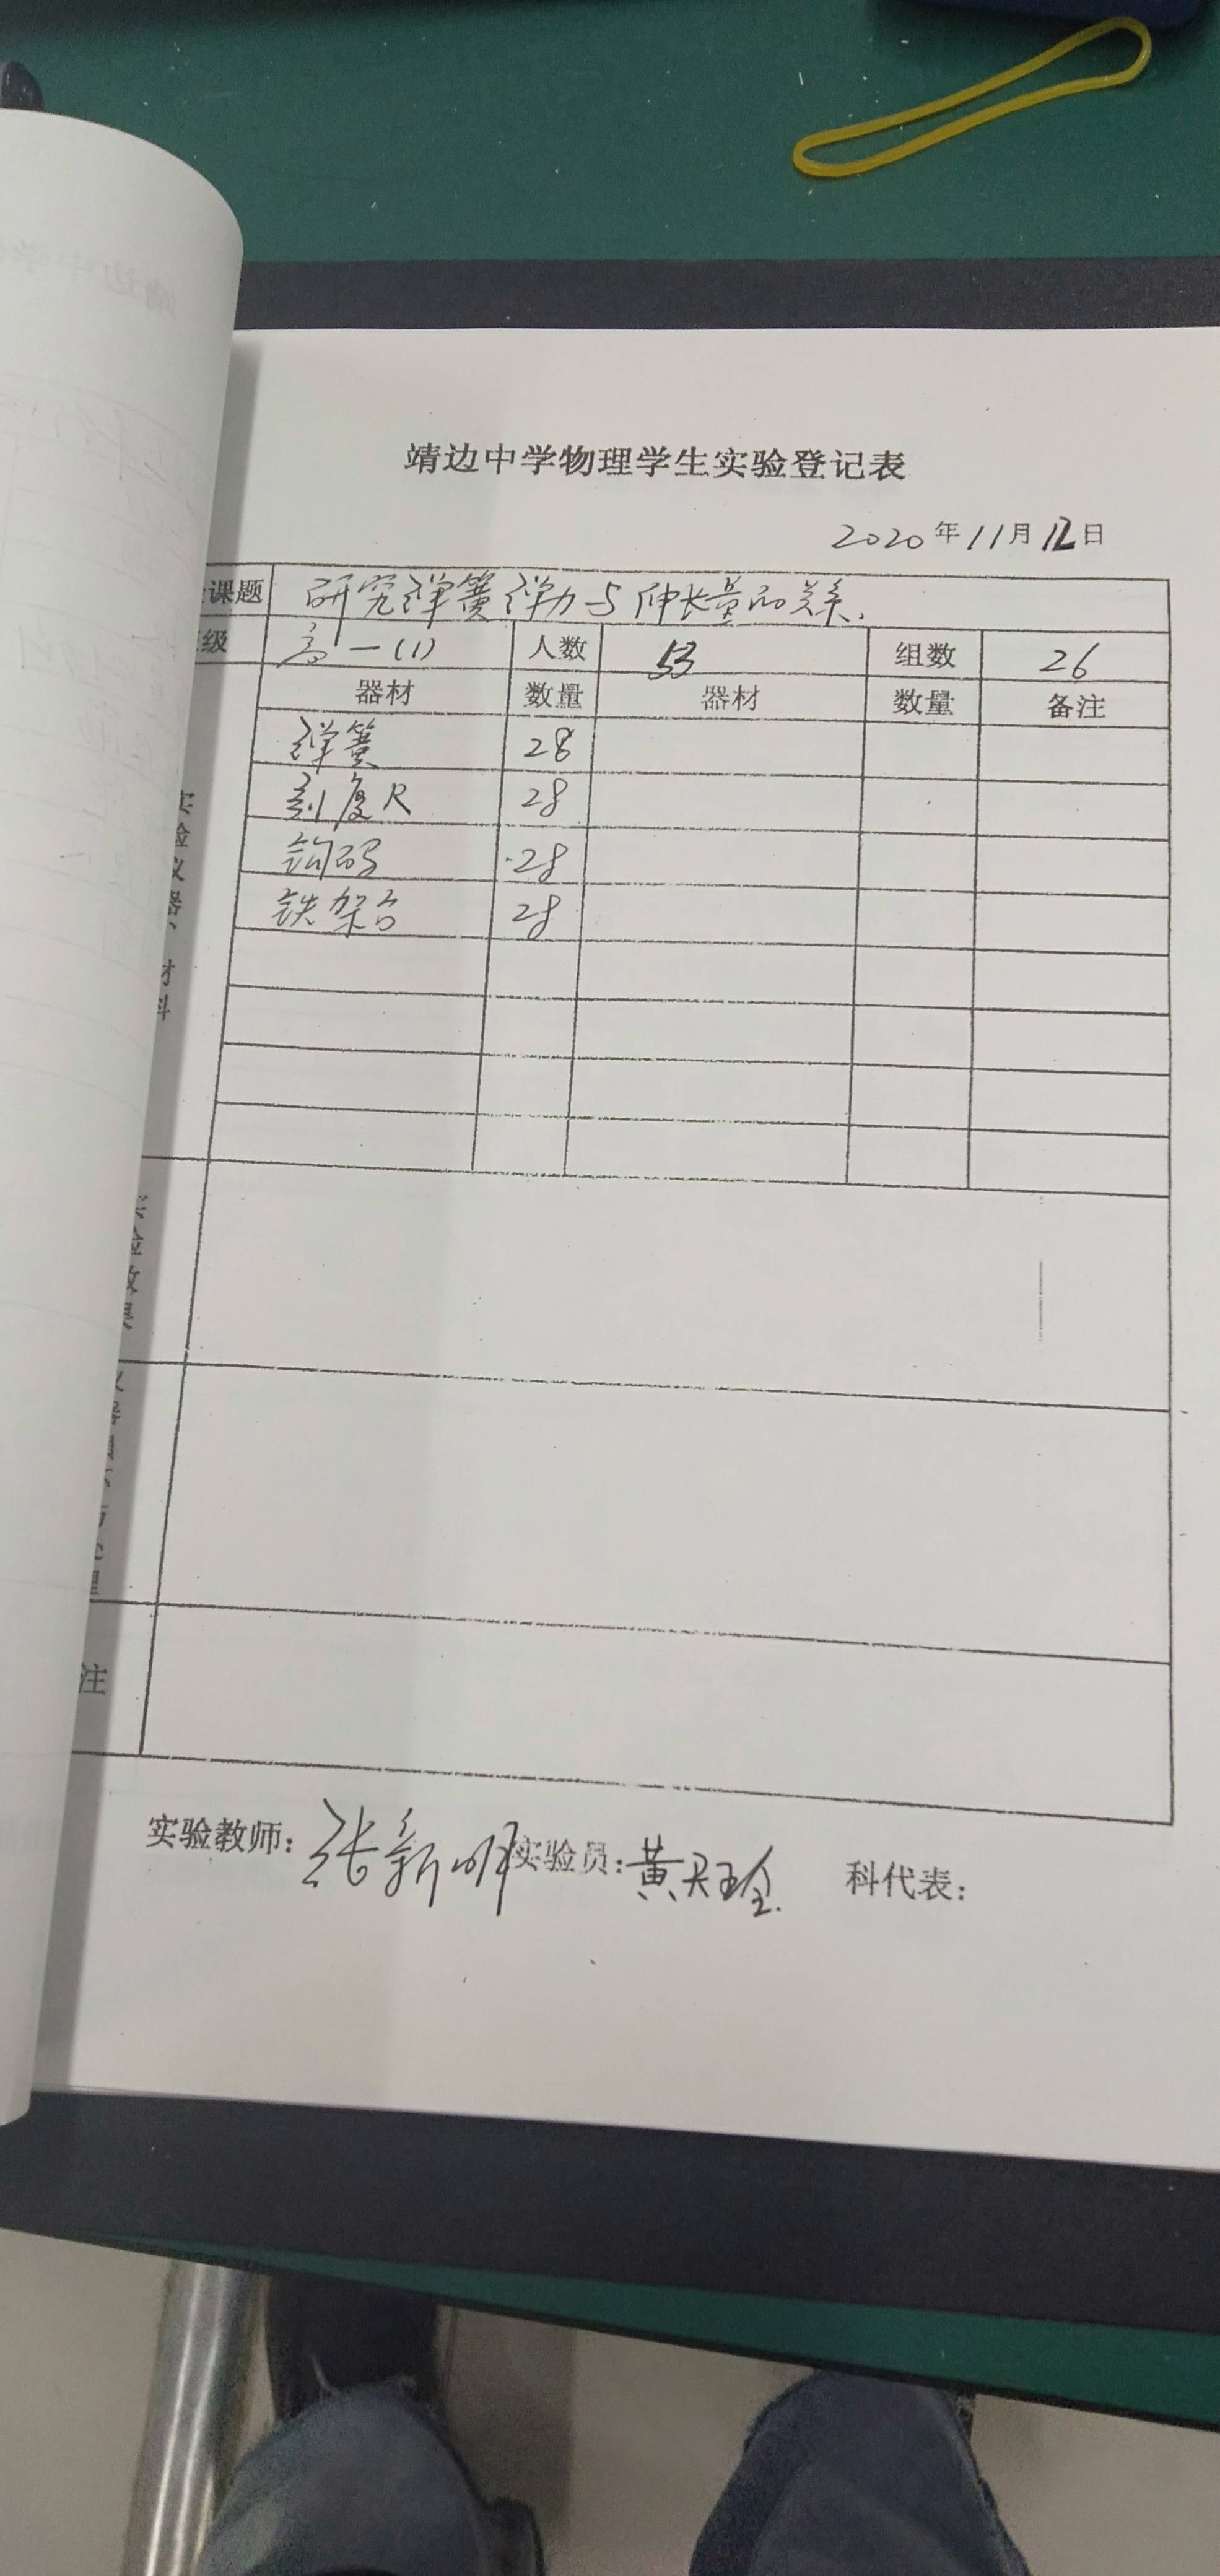 靖边中学物理学生实验登记表
2020年11月12日
课题 研究弹簧弹力与伸长量的关系.
级 高一(1) 人数 53 组数 26
器材 数量 器材 数量 备注
弹簧 28
刻度尺 28
钩码 28
铁架台 28
实验仪器、材料
实验效果
注
实验教师: 张新明 实验员: 黄天 科代表: